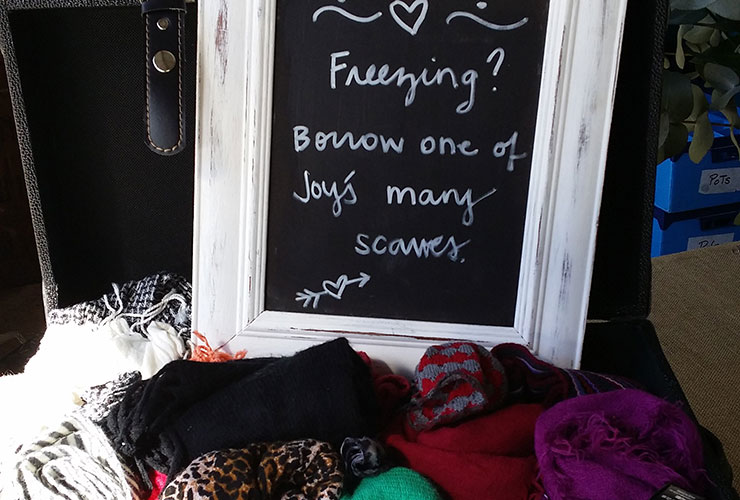 Freezing?
Borrow one of
Joy's many
scarves.
POTS